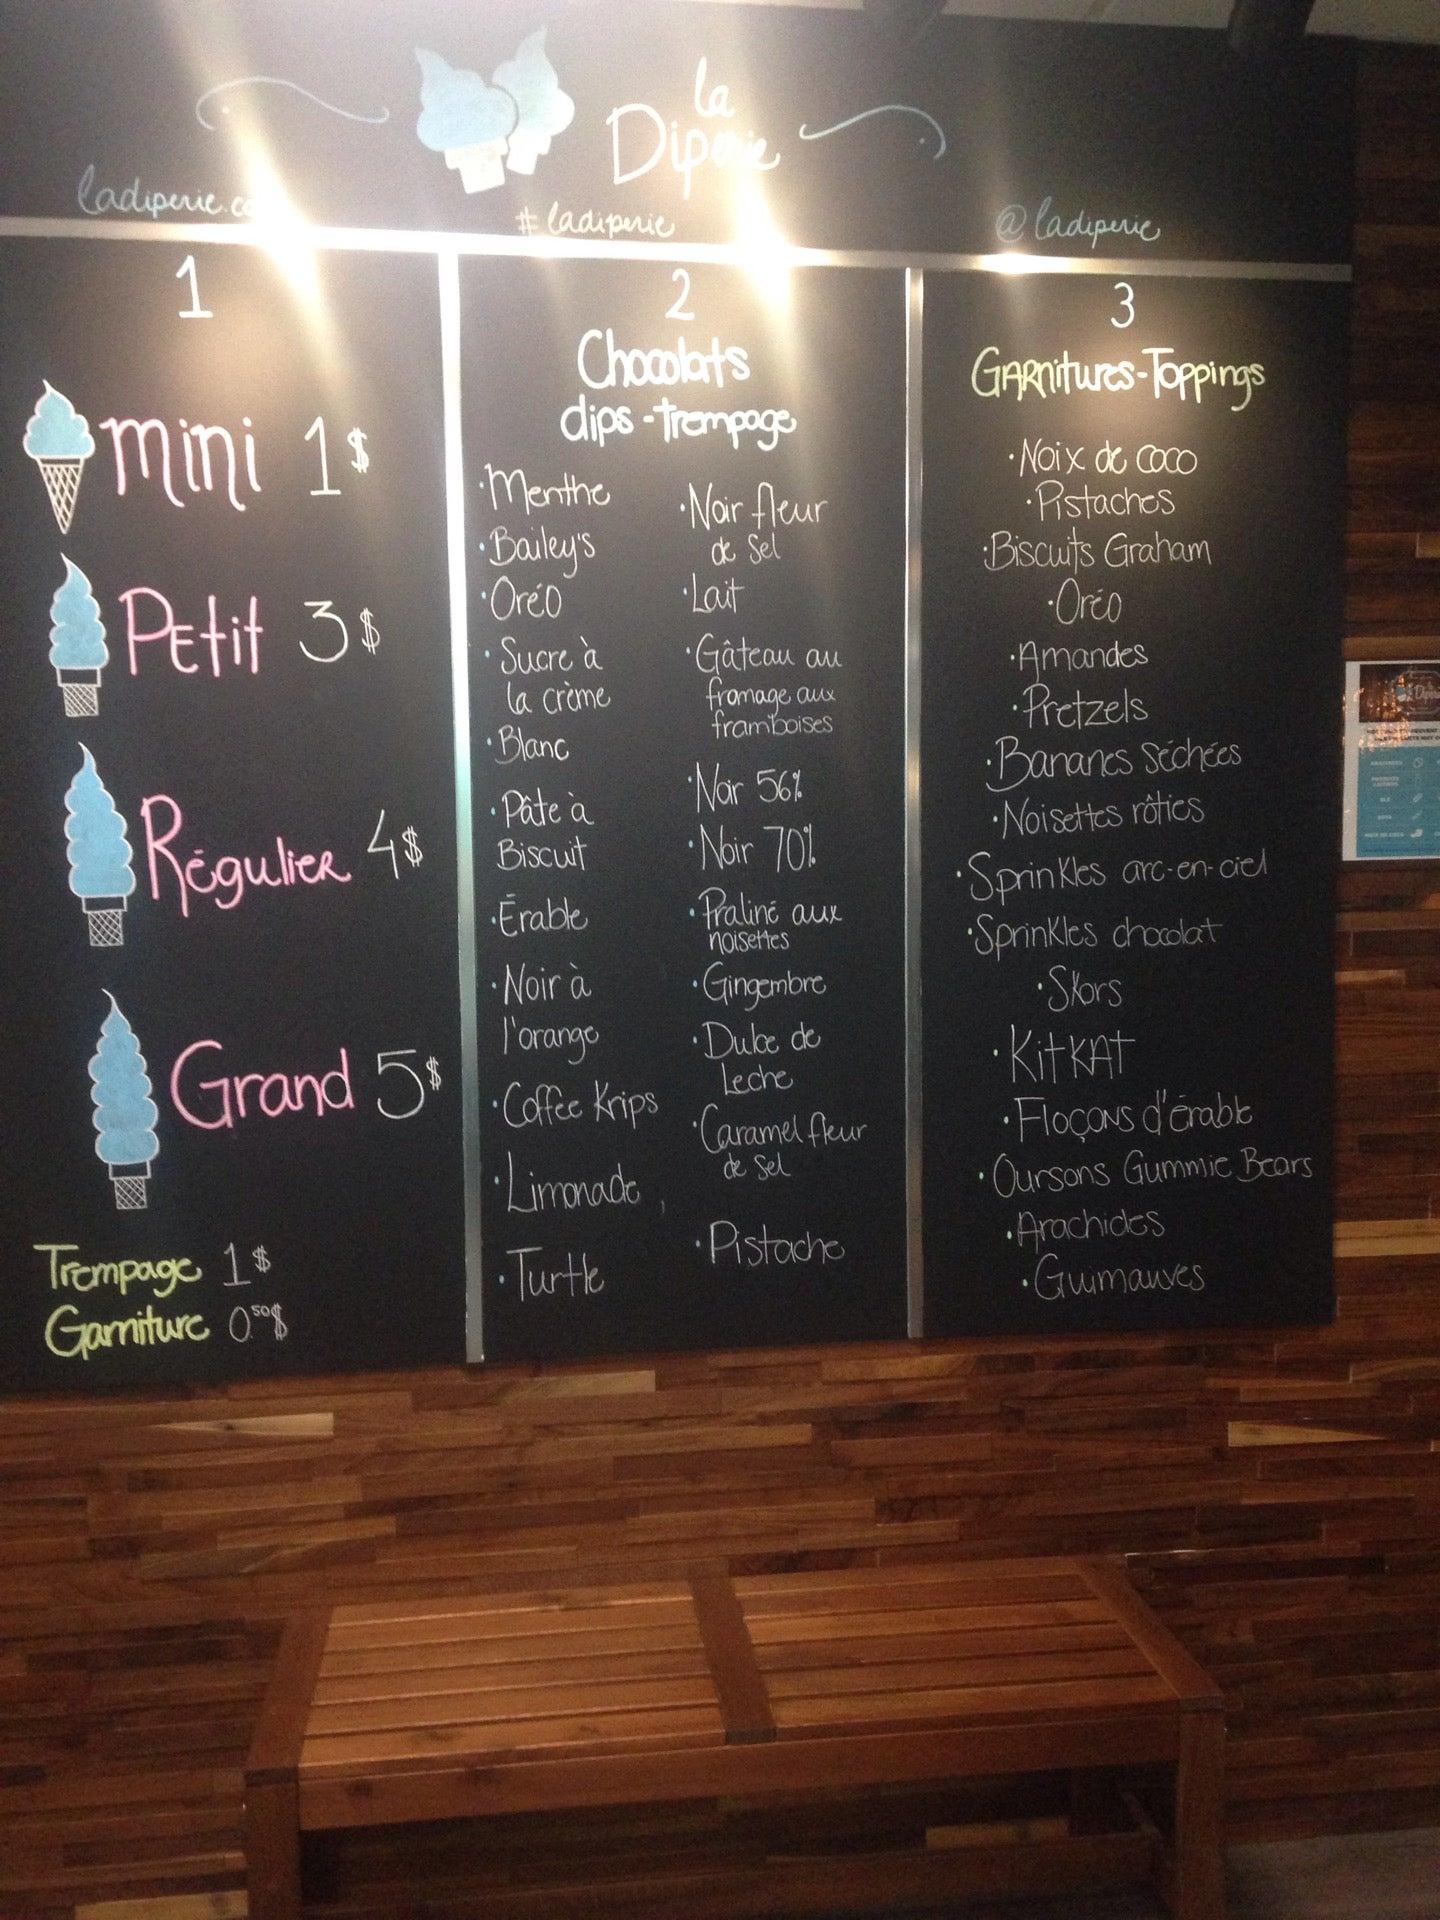 la
Diperie
ladiperie.co
#ladiperie
@ladiperie
1
mini 1$
Petit 3$
Régulier 4$
Grand 5$
Trempage 1$
Garniture 0.50$
2
Chocolats
dips - trempage
·Menthe
·Bailey's
·Oréo
·Sucre à
la crème
·Blanc
·Pâte à
Biscuit
·Érable
·Noir à
l'orange
·Coffee Krips
·Limonade
·Turtle
·Noir fleur
de sel
·Lait
·Gâteau au
fromage aux
framboises
·Noir 56%
·Noir 70%
·Praliné aux
noisettes
·Gingembre
·Dulce de
Leche
·Caramel fleur
de sel
·Pistache
3
GARNitures-Toppings
·Noix de coco
·Pistaches
·Biscuits Graham
·Oréo
·Amandes
·Pretzels
·Bananes séchées
·Noisettes rôties
·Sprinkles arc-en-ciel
·Sprinkles chocolat
·Skors
·KitKAT
·Floçons d'érable
·Oursons Gummie Bears
·Arachides
·Guimauves